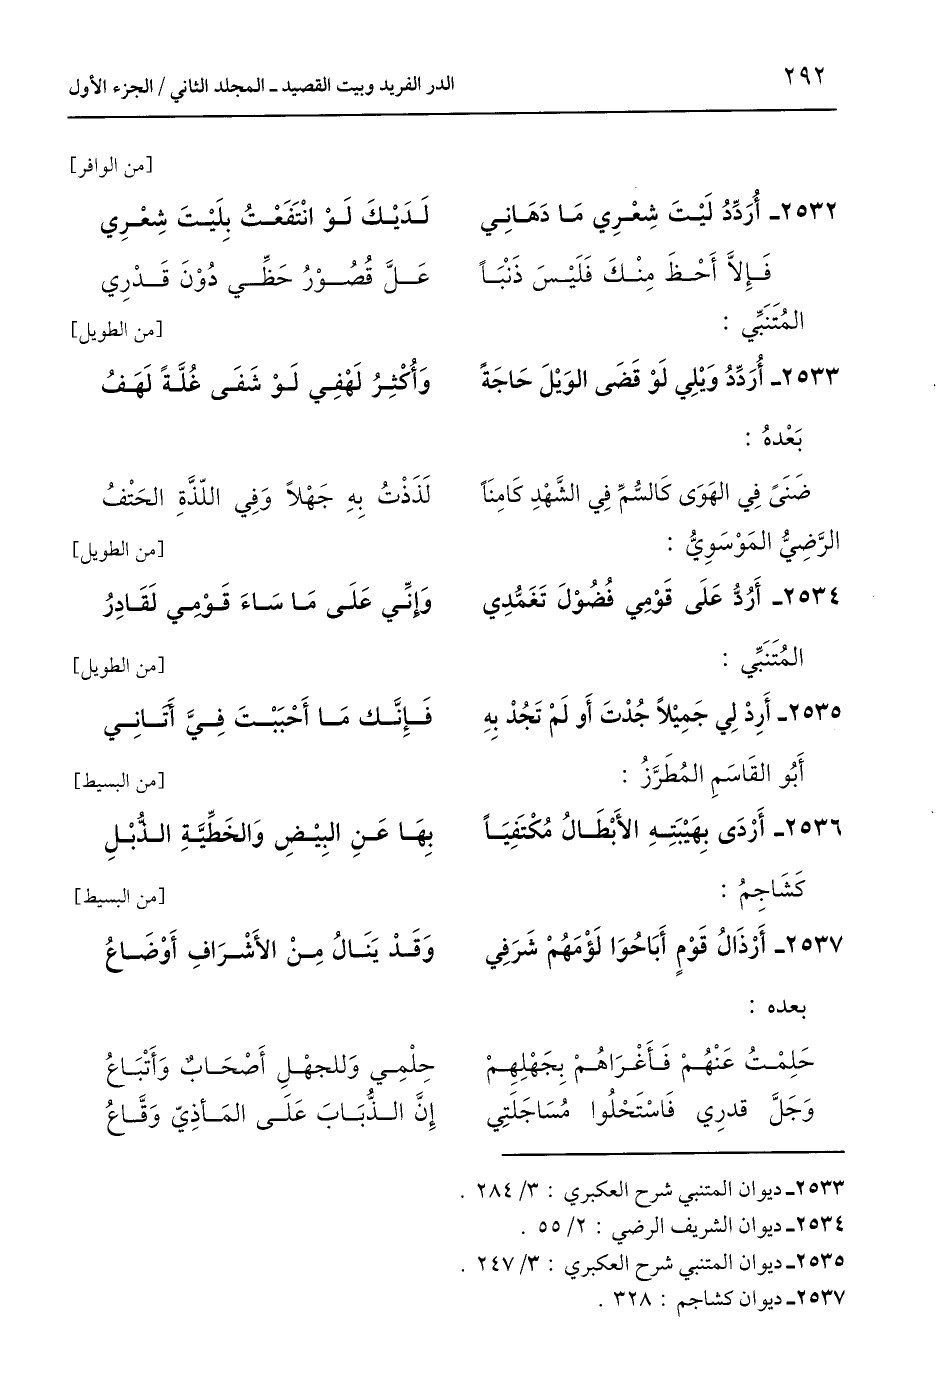 ٢٩٢ الدر الفريد وبيت القصيد ـ المجلد الثاني / الجزء الأول
[من الوافر]
٢٥٣٢ـ أُرَدِّدُ لَيْتَ شِعْرِي مَا دَهَانِي لَدَيْكَ لَوْ انْتَفَعْتُ بِلَيْتَ شِعْرِي
فَإِلاَّ أَحْظَ مِنْكَ فَلَيْسَ ذَنْبَاً عَلَّ قُصُوْرُ حَظِّي دُوْنَ قَدْرِي
المُتَنَبِّي : [من الطويل]
٢٥٣٣ـ أُرَدِّدُ وَيْلِي لَوْ قَضَى الوَيْلَ حَاجَةً وَأُكْثِرُ لَهْفِي لَوْ شَفَى غُلَّةً لَهَفُ
بَعْدهُ :
ضَنَىً فِي الهَوَى كَالسُّمِّ فِي الشَّهْدِ كَامِنَاً لَذَذْتُ بِهِ جَهْلاً وَفِي اللّذَّةِ الحَتْفُ
الرَّضِيُّ المَوْسَوِيُّ : [من الطويل]
٢٥٣٤ـ أَرُدُّ عَلَى قَوْمِي فُضُوْلَ تَغَمُّدِي وَإِنِّي عَلَى مَا سَاءَ قَوْمِي لَقَادِرُ
المُتَنَبِّي : [من الطويل]
٢٥٣٥ـ أَرِدْ لِي جَمِيْلاً جُدْتَ أَو لَمْ تَجُدْ بِهِ فَإِنَّكَ مَا أَحْبَبْتَ فِيَّ أَتَانِي
أَبُو القَاسَمِ المُطَرَّزُ : [من البسيط]
٢٥٣٦ـ أَرْدَى بِهَيْبَتِهِ الأَبْطَالُ مُكْتَفِيَاً بِهَا عَنِ البِيْضِ وَالخَطِّيَّةِ الذُّبْلِ
كَشَاجِمُ : [من البسيط]
٢٥٣٧ـ أَرْذَالُ قَوْمٍ أَبَاحُوَا لَوْمَهُمْ شَرَفِي وَقَدْ يَنَالُ مِنْ الأَشْرَافِ أَوْضَاعُ
بعده :
حَلِمْتُ عَنْهُمْ فَأَغْرَاهُمْ بِجَهْلِهِمْ حِلْمِي وَللجهْلِ أَصْحَابٌ وَأَتْبَاعُ
وَجَلَّ قدرِي فَاسْتَحْلُوا مُسَاجَلَتِي إِنَّ الذُّبَابَ عَلَى المَأذِيّ وَقَّاعُ
٢٥٣٣ـ ديوان المتنبي شرح العكبري : ٣/ ٢٨٤ .
٢٥٣٤ـ ديوان الشريف الرضي : ٢/ ٥٥ .
٢٥٣٥ـ ديوان المتنبي شرح العكبري : ٣/ ٢٤٧ .
٢٥٣٧ـ ديوان كشاجم : ٣٢٨ .